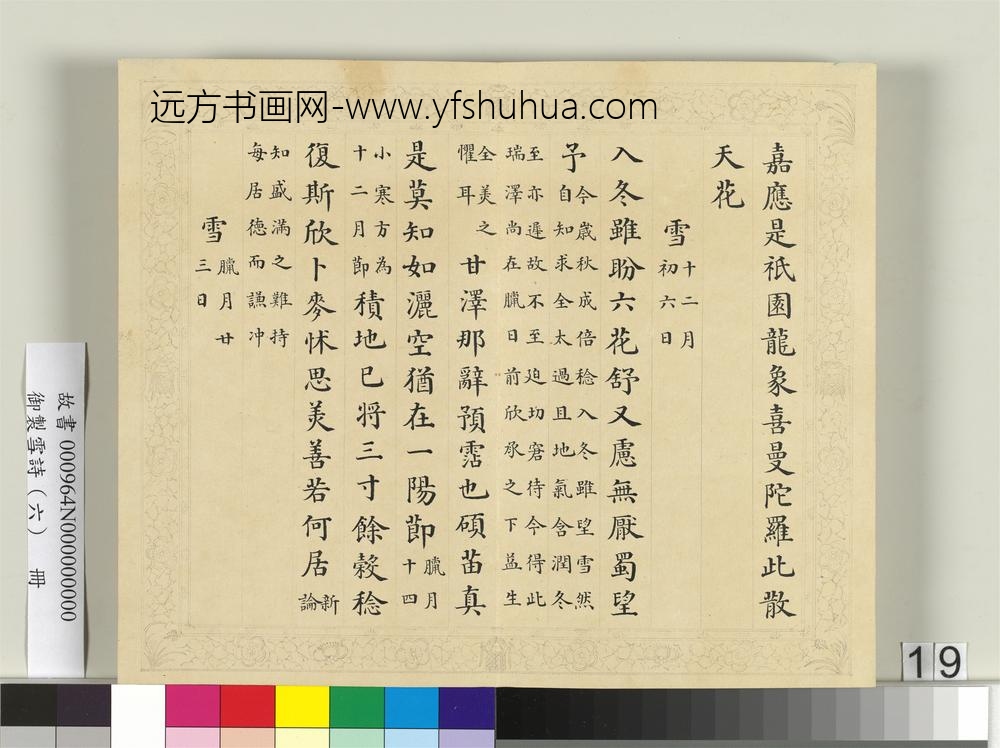 远方书画网-www.yfshuhua.com
嘉應是祇園龍象喜曼陀羅此散
天花
雪 十二月
初六日
入冬雖盼六花舒又慮無厭蜀望
予 今歲秋成倍稔入冬雖望雪然
自知求全太過且地氣含潤冬
至亦遲故不至迫切窘待今得此
瑞澤尚在臘日前欣承之下益生
全美之
懼耳
甘澤那辭預霑也碩苗真
是莫知如灑空猶在一陽節 臘月
十四
小寒方為
十二月節
積地已將三寸餘穀稔
復斯欣卜麥怵思美善若何居 新
論
知盛滿之難持
每居德而謙冲
雪 臘月廿
三日
故書 000964N000000000
御製雪詩（六） 冊
19